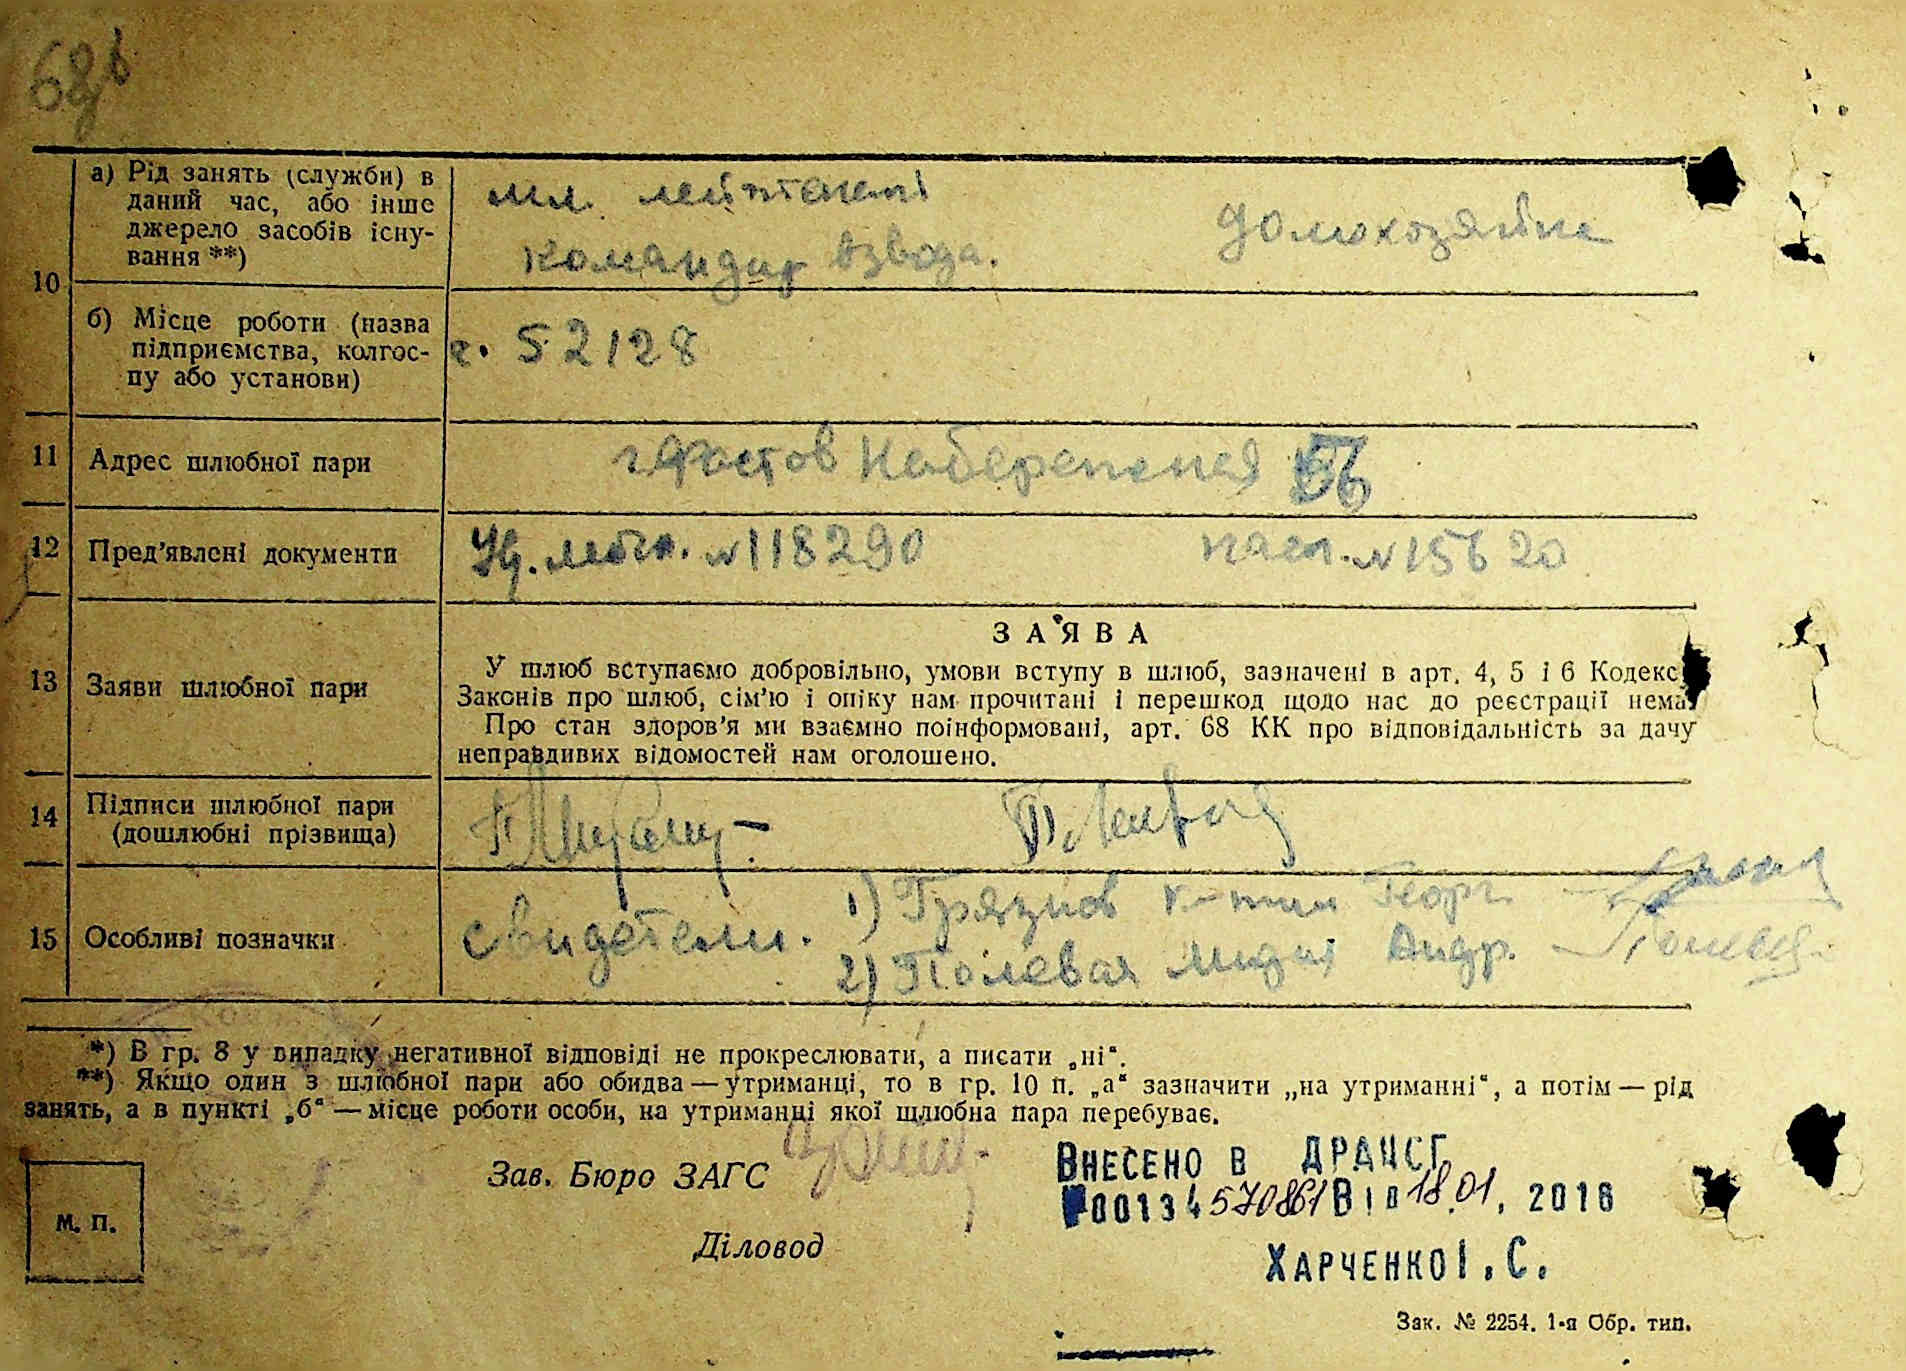 68б
10
а) Рід занять (служби) в
даний час, або інше
джерело засобів існу-
вання **)
мл. лейтенант
командир взвода.
домохозяйка
б) Місце роботи (назва
підприємства, колгос-
пу або установи)
ч. 52128
11 Адрес шлюбної пари
г. Фастов Набережная 56
12 Пред'явлені документи
Уд. личн. №118290 пасп. №15620
13 Заяви шлюбної пари
ЗАЯВА
У шлюб вступаємо добровільно, умови вступу в шлюб, зазначені в арт. 4, 5 і 6 Кодекс
Законів про шлюб, сім'ю і опіку нам прочитані і перешкод щодо нас до реєстрації нема
Про стан здоров'я ми взаємно поінформовані, арт. 68 КК про відповідальність за дачу
неправдивих відомостей нам оголошено.
14 Підписи шлюбної пари
(дошлюбні прізвища)
15 Особливі позначки
свидетели. 1) Грязнов К-тин Георг.
2) Полевая Лидия Андр.
*) В гр. 8 у випадку негативної відповіді не прокреслювати, а писати „ні“.
**) Якщо один з шлюбної пари або обидва — утриманці, то в гр. 10 п. „а“ зазначити „на утриманні“, а потім — рід
занять, а в пункті „б“ — місце роботи особи, на утриманні якої шлюбна пара перебуває.
М. П.
Зав. Бюро ЗАГС
Діловод
ВНЕСЕНО В ДРАЦСГ
№00134570861 Від 18.01. 2016
ХАРЧЕНКО І. С.
Зак. № 2254. 1-я Обр. тип.